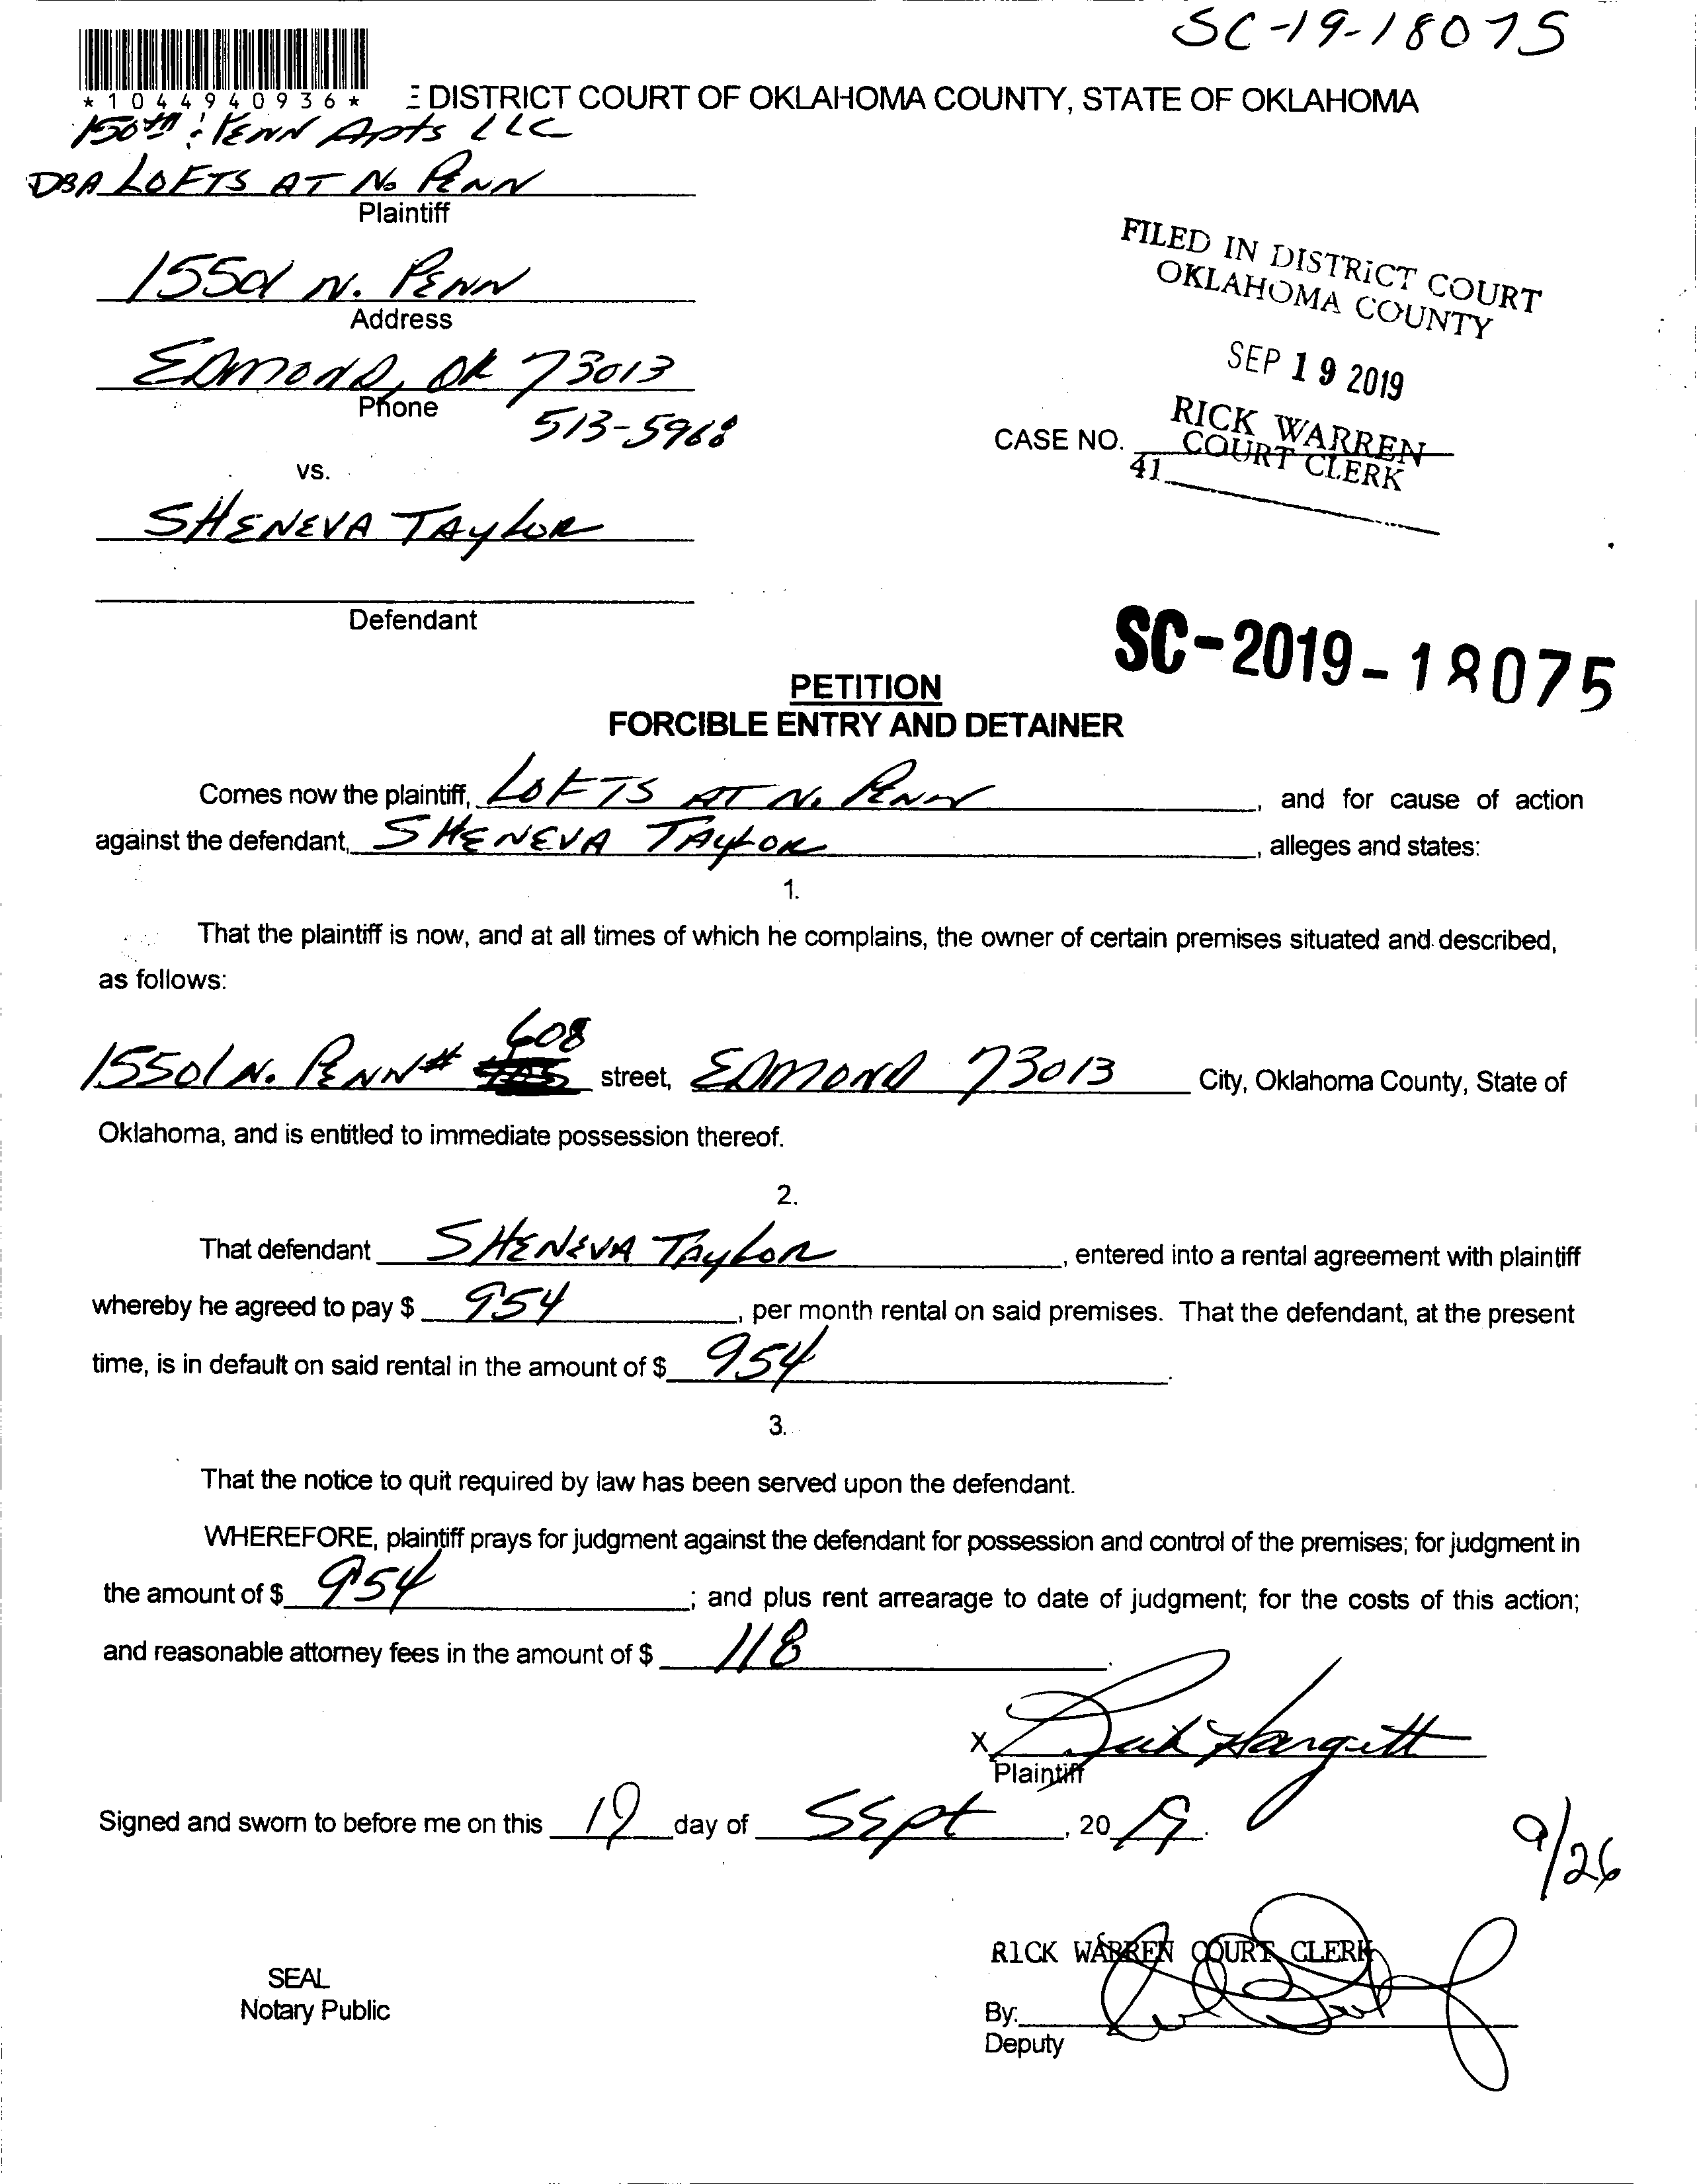 SC-19-18075
*1044940936*
E DISTRICT COURT OF OKLAHOMA COUNTY, STATE OF OKLAHOMA
150th & PENN Apts LLC
DBA LOFTS AT N. PENN
Plaintiff
15501 N. PENN
Address
EDMOND, OK 73013
Phone
513-5968
vs.
SHENEVA TAYLOR
Defendant
FILED IN DISTRICT COURT
OKLAHOMA COUNTY
SEP 19 2019
RICK WARREN
COURT CLERK
CASE NO.
41
SC-2019-18075
PETITION
FORCIBLE ENTRY AND DETAINER
Comes now the plaintiff, LOFTS AT N. PENN, and for cause of action
against the defendant, SHENEVA TAYLOR, alleges and states:
1.
That the plaintiff is now, and at all times of which he complains, the owner of certain premises situated and described,
as follows:
608
15501 N. PENN # street, EDMOND 73013 City, Oklahoma County, State of
Oklahoma, and is entitled to immediate possession thereof.
2.
That defendant SHENEVA TAYLOR, entered into a rental agreement with plaintiff
whereby he agreed to pay $ 954, per month rental on said premises. That the defendant, at the present
time, is in default on said rental in the amount of $ 954.
3.
That the notice to quit required by law has been served upon the defendant.
WHEREFORE, plaintiff prays for judgment against the defendant for possession and control of the premises; for judgment in
the amount of $ 954; and plus rent arrearage to date of judgment; for the costs of this action;
and reasonable attorney fees in the amount of $ 118.
X Hargett
Plaintiff
Signed and sworn to before me on this 19 day of Sept, 20 19.
9/26
RICK WARREN COURT CLERK
SEAL
Notary Public
By:
Deputy